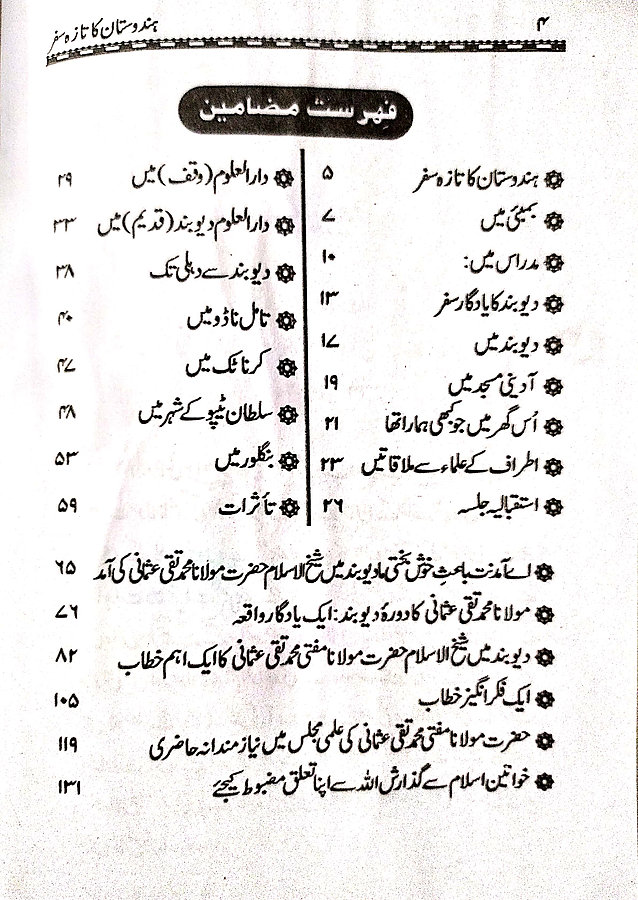 ۴ ہندوستان کا تازہ سفر
فہرست مضامین
ہندوستان کا تازہ سفر ۵
بمبئی میں ۷
مدراس میں: ۱۰
دیوبند کا یادگار سفر ۱۳
دیوبند میں ۱۷
آدینی مسجد میں ۱۹
اُس گھر میں جو کبھی ہمارا تھا ۲۱
اطراف کے علماء سے ملاقاتیں ۲۳
استقبالیہ جلسہ ۲۶
دارالعلوم (وقف) میں ۲۹
دارالعلوم دیوبند (قدیم) میں ۳۳
دیوبند سے دہلی تک ۳۸
تامل ناڈو میں ۴۰
کرناٹک میں ۴۷
سلطان ٹیپو کے شہر میں ۴۸
بنگلور میں ۵۳
تأثرات ۵۹
اے آمدنت باعثِ خوش بختیِ ما دیوبند میں شیخ الاسلام حضرت مولانا محمد تقی عثمانی کی آمد ۶۵
مولانا محمد تقی عثمانی کا دورۂ دیوبند: ایک یادگار واقعہ ۷۶
دیوبند میں شیخ الاسلام حضرت مولانا مفتی محمد تقی عثمانی کا ایک اہم خطاب ۸۲
ایک فکر انگیز خطاب ۱۰۵
حضرت مولانا مفتی محمد تقی عثمانی کی علمی مجلس میں نیاز مندانہ حاضری ۱۱۹
خواتین اسلام سے گذارش اللہ سے اپنا تعلق مضبوط کیجئے ۱۳۱